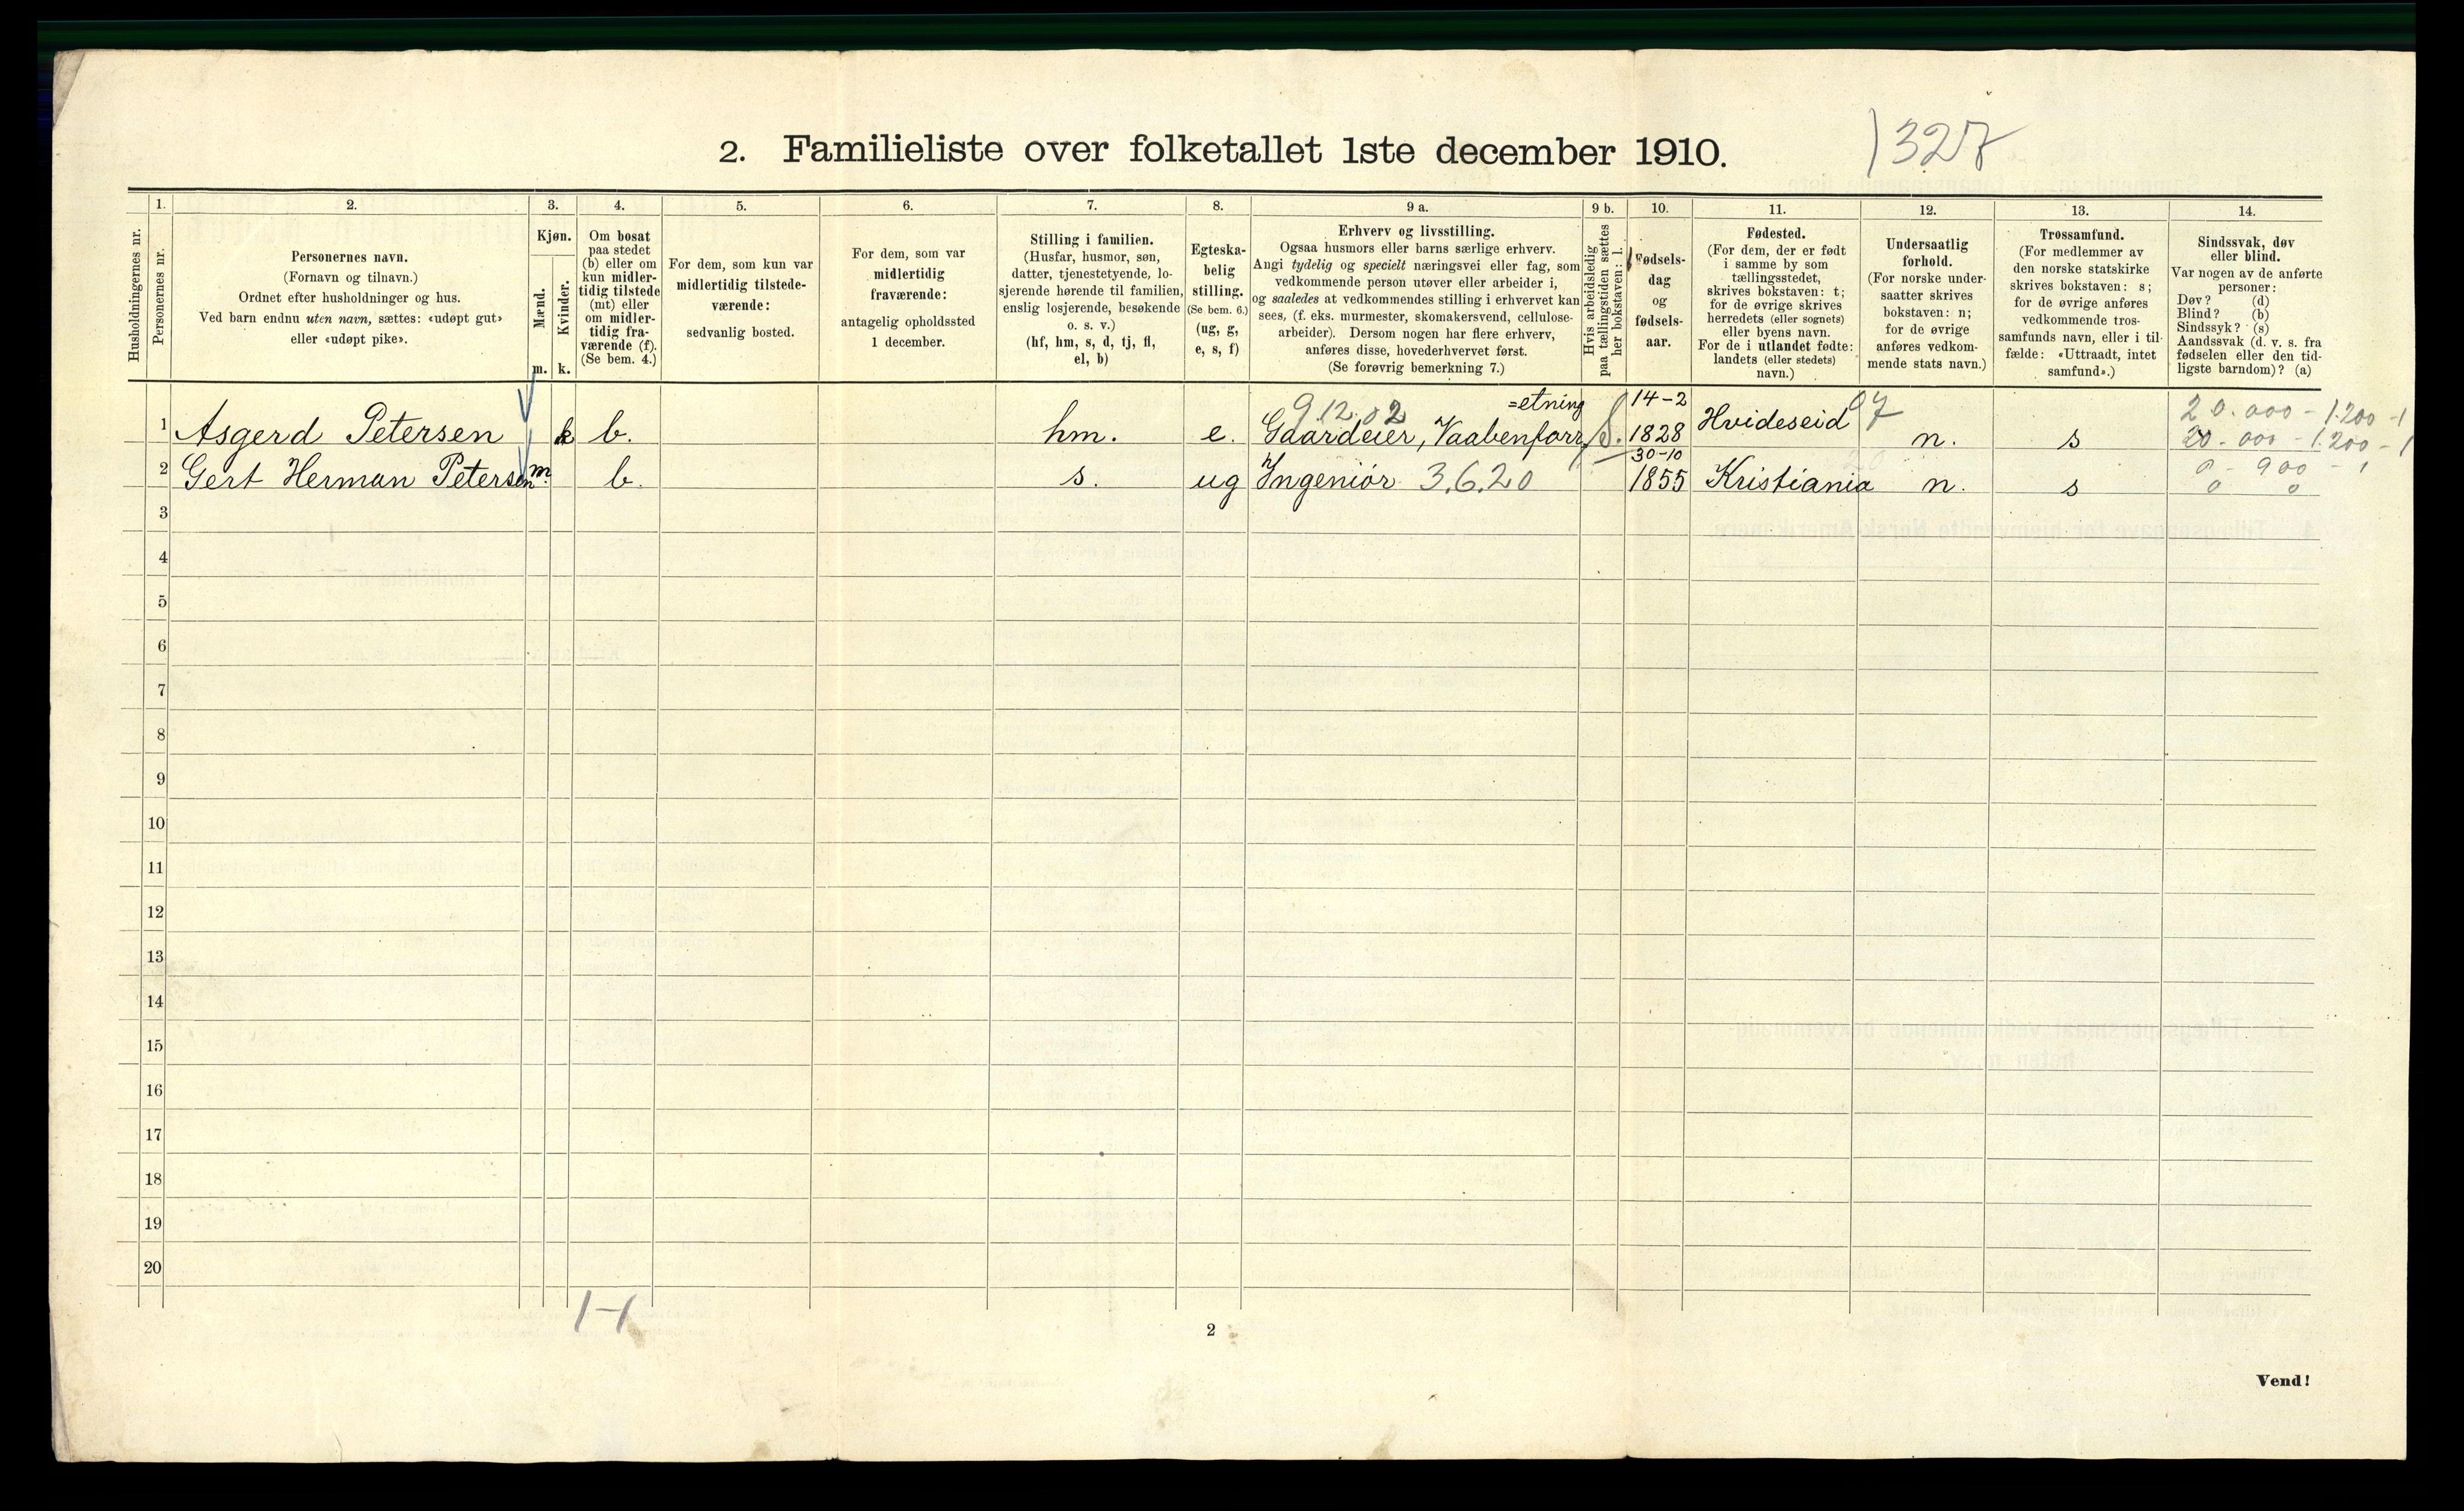 2. Familieliste over folketallet 1ste december 1910.
1327
Husholdningernes nr.
1.
Personernes nr.
2.
Personernes navn.
(Fornavn og tilnavn.)
Ordnet efter husholdninger og hus.
Ved barn endnu uten navn, sættes: «udøpt gut»
eller «udøpt pike».
3.
Kjøn.
Mænd.
m.
Kvinder.
k.
4.
Om bosat
paa stedet
(b) eller om
kun midler-
tidig tilstede
(mt) eller
om midler-
tidig fra-
værende (f).
(Se bem. 4.)
5.
For dem, som kun var
midlertidig tilstede-
værende:
sedvanlig bosted.
6.
For dem, som var
midlertidig
fraværende:
antagelig opholdssted
1 december.
7.
Stilling i familien.
(Husfar, husmor, søn,
datter, tjenestetyende, lo-
sjerende hørende til familien,
enslig losjerende, besøkende
o. s. v.)
(hf, hm, s, d, tj, fl,
el, b)
8.
Egteska-
belig
stilling.
(Se bem. 6.)
(ug, g,
e, s, f)
9 a.
Erhverv og livsstilling.
Ogsaa husmors eller barns særlige erhverv.
Angi tydelig og specielt næringsvei eller fag, som
vedkommende person utøver eller arbeider i,
og saaledes at vedkommendes stilling i erhvervet kan
sees, (f. eks. murmester, skomakersvend, cellulose-
arbeider). Dersom nogen har flere erhverv,
anføres disse, hovederhvervet først.
(Se forøvrig bemerkning 7.)
9 b.
Hvis arbeidsledig
paa tællingstiden sættes
her bokstaven: l.
10.
Fødsels-
dag
og
fødsels-
aar.
11.
Fødested.
(For dem, der er født
i samme by som
tællingsstedet,
skrives bokstaven: t;
for de øvrige skrives
herredets (eller sognets)
eller byens navn.
For de i utlandet fødte:
landets (eller stedets)
navn.)
12.
Undersaatlig
forhold.
(For norske under-
saatter skrives
bokstaven: n;
for de øvrige
anføres vedkom-
mende stats navn.)
13.
Trossamfund.
(For medlemmer av
den norske statskirke
skrives bokstaven: s;
for de øvrige anføres
vedkommende tros-
samfunds navn, eller i til-
fælde: «Uttraadt, intet
samfund».)
14.
Sindssvak, døv
eller blind.
Var nogen av de anførte
personer:
Døv? (d)
Blind? (b)
Sindssyk? (s)
Aandssvak (d. v. s. fra
fødselen eller den tid-
ligste barndom)? (a)
9.12.02 =etning 14-2 07 20.000 - 1.200 - 1
1 Asgerd Petersen k b. hm. e. Gaardeier, Vaabenforr 1828 Hvideseid n. s 20.000 - 1.200 - 1
30-10 0 - 900 - 1
2 Gert Herman Petersen m. b. s. ug Ingeniör 3.6.20 1855 Kristiania n. s 0 0
3
4
5
6
7
8
9
10
11
12
13
14
15
16
17
18
19
20
1-1
2
Vend!